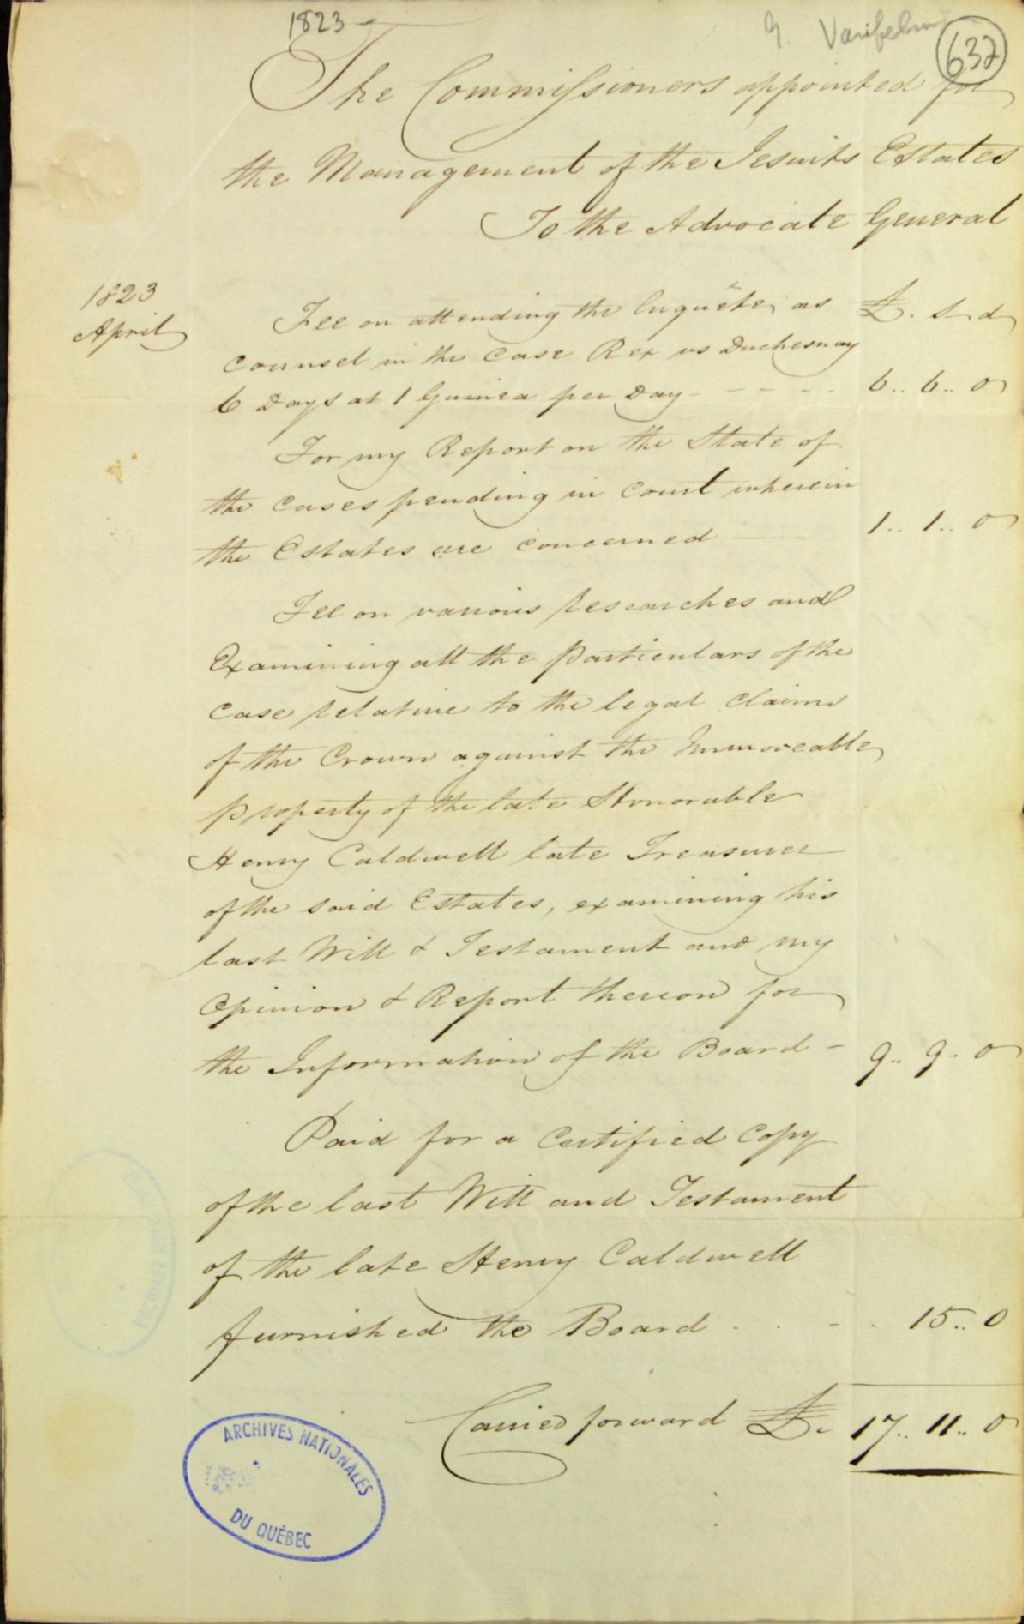 1823
G. Vanfelson
632
The Commissioners appointed for
the Management of the Jesuits Estates
To the Advocate General
1823
April
Fee on attending the Enquête, as £. s d
counsel in the case Rex vs Duchesnay
6 Days at 1 Guinea per Day - - - - - 6.. 6.. 0
For my Report on the State of
the Cases pending in Court wherein
the Estates are concerned 1.. 1.. 0
Fee on various researches and
Examining all the particulars of the
case relative to the legal claims
of the Crown against the Immoveable
property of the late Honorable
Henry Caldwell late Treasurer
of the said Estates, examining his
last Will & Testament and my
Opinion & Report thereon for
the Information of the Board - 9.. 9.. 0
Paid for a Certified Copy
of the last Will and Testament
of the late Henry Caldwell
furnished the Board . . - . 15.. 0
Carried forward £. 17.. 11.. 0
ARCHIVES NATIONALES
DU QUÉBEC